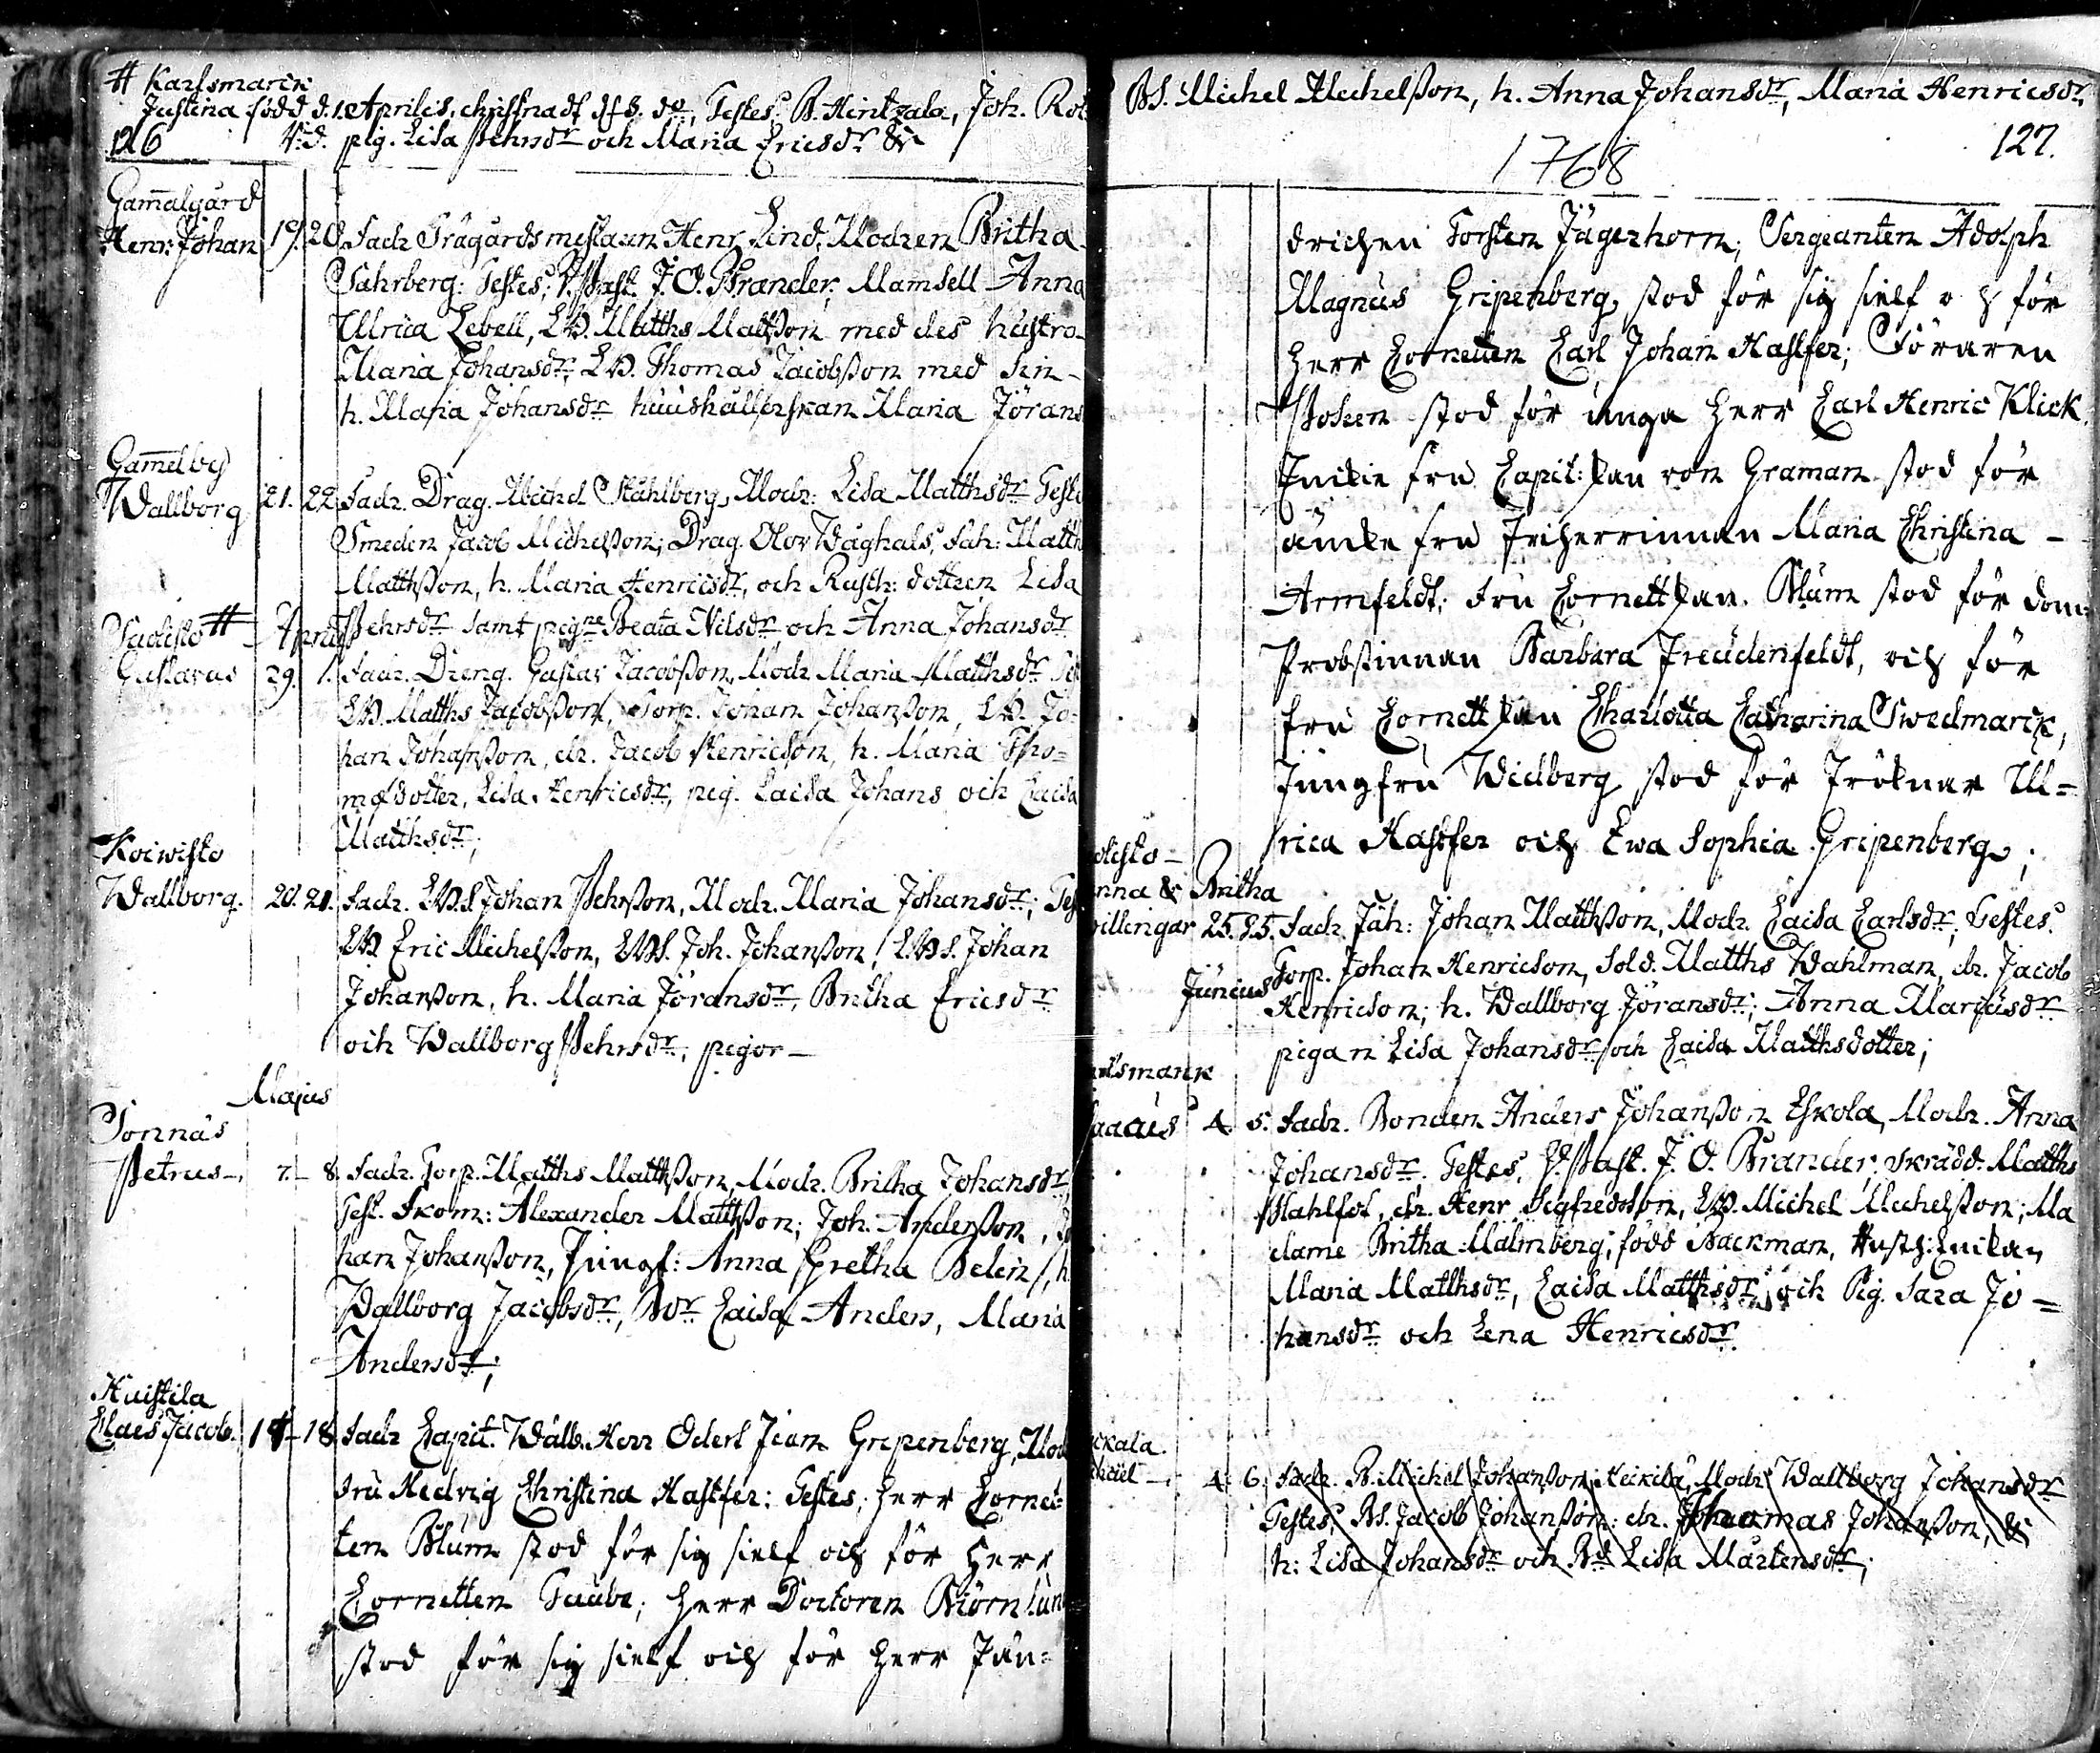 # Karlsmarck
Justina född d. 1. Aprilis, christnadt d. 3. do, Testes: B. Hintzala, Joh. Rot
126 N:d. pig. Lisa Pehrsdr och Maria Ericsdr &
Gam̄algård
Henr: Johan 19. 20. Fadr Trägårdsmestaren Henr. Lind, Modren Britha
Sahrberg: Testes; V. Past. J. O. Brander, Mamsell Anna
Ulrica Lebell, LB. Matths Mattsson med des hustro
Maria Johansdr, LB. Thomas Jacobsson med sin
h. Maria Johansdr huushållerskan Maria Jörans
Gam̄elby
Wallborg 21. 22. Fadr. Drag. Michel Ståhlberg, Modr: Lisa Matthsdr Teste
Smeden Jacob Michelsson; Drag. Olov Wåghals, Jäh: Matth
Matthsson, h. Maria Henricsdr, och Rusth: dottren Lisa
# Aprilis Pehrsdr samt pigne Beata Nilsdr och Anna Johansdr
Gustavus 29. 1. Fadr. Dreng. Gustav Jacobsson, Modr Maria Matthsdr Test
LB. Matths Jacobsson, Torp. Johan Johansson, LB. Jo-
han Johansson, dr. Jacob Henricson, h. Maria Tho=
masdotter, Lisa Henricsdr, pig. Caisa Johans och Caisa
Matthsdr;
Koiwisto
Wallborg. 20. 21. Fadr. LBS Johan Pehrsson, Modr. Maria Johansdr; Test
LB Eric Michelsson, LBS. Joh. Johansson, LBS. Johan
Johansson, h. Maria Jöransdr, Britha Ericsdr
och Wallborg Pehrsdr, pigor –
Majus
Sonnäs
Petrus – 7. – 8. Fadr. Torp. Matths Mattsson, Modr. Britha Johansdr
Test. Skom: Alexander Mattsson; Joh. Andersson, Jo
han Johansson, Jungf: Anna Gretha Belin, h.
Wallborg Jacobsdr, Caisa Anders, Maria
Andersdr;
Huistila
Claes Jacob. 17 – 18. Fadr Capit. Wälb. Herr Odert Joan Gripenberg, Mod
Fru Hedvig Christina Hastfer: Testes, Herr Corne=
ten Blum stod för sig sielf och för Herr
Cornetten Taube; Herr Doctoren Biörnlund
stod för sig sielf och för Herr Fän=
BS. Michel Michelsson, h. Anna Johansdr, Maria Henricsdr,
1768 127.
drichen Torsten Jägerhorn, Sergeanten Adolph
Magnus Gripenberg, stod för sig sielf och för
Herr Cornetten Carl Johan Hastfer; Föraren
stod för unga Herr Carl Henric Klick.
Enckie fru Capit:skan von Graman stod för
äncke fru Friherrinnan Maria Christina –
Armfeldt; Fru Cornettskan. Blum stod för dom=
Probstinnan Barbara Freudenfeldt, och för
fru Cornettskan Charlotta Catharina Swedmarck,
Jungfru Widberg stod för Fröknar Ul=
rica Hastfer och Ewa Sophia Gripenberg;
olisto –
nna & Britha
villingar 25. 25. Fadr. Jäh: Johan Matthsson, Modr. Caisa Carlsdr; Testes.
Torp. Johan Henricson, Sold. Matths Wahlman, dr. Jacob
Junius Henricson; h. Wallborg Jöransdr; Anna Marcusdr
pigan Lisa Johansdr och Caisa Matthsdotter;
lsmark
saacus 4. 5. Fadr. Bonden Anders Johansson Eskola, Modr. Anna
Johansdr. Testes, V. Past. J. O. Brander, skrädd. Matths
Stahlfot, dr. Henr Sigfredsson, LB. Michel Michelsson, Ma
dame Britha Malmberg, född Backman, Enckan
Maria Matthsdr, Caisa Matthsdr och Pig. Sara Jo=
hansdr och Lena Henricsdr.
ckala.
chael – 4. 6. Fadr. B. Michel Johansson Heickilä, Modr: Wallborg Johansdr
Testes, BS. Jacob Johansson: dr. Thomas Johansson, &
h: Lisa Johansdr och Lisa Mårtensdr;